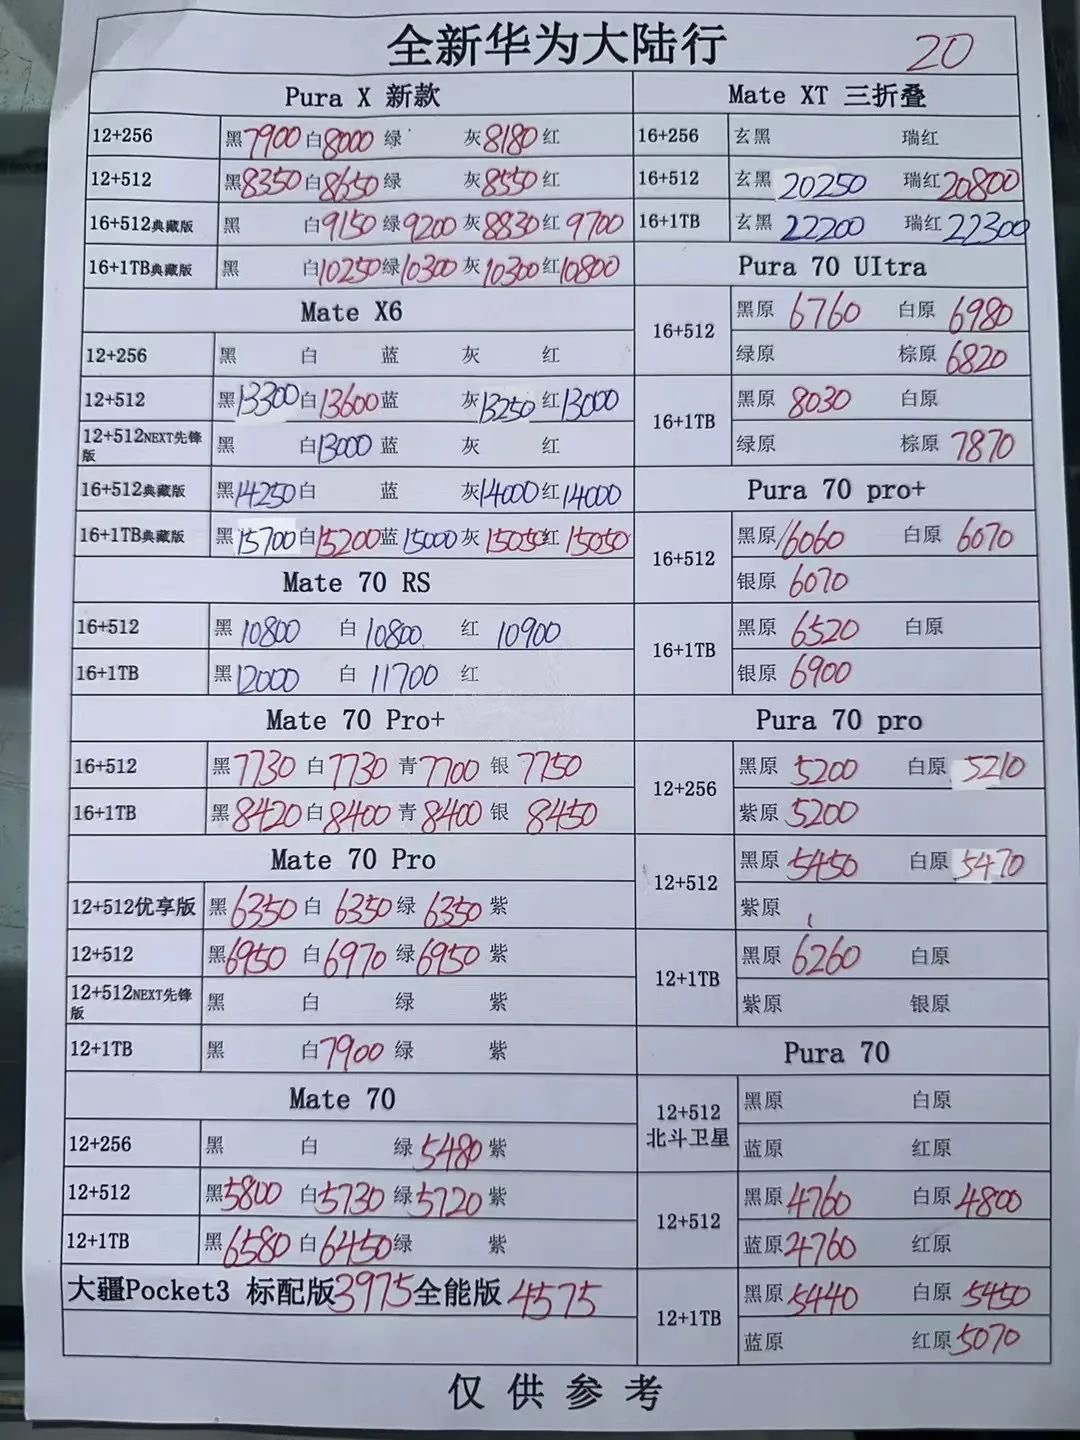 全新华为大陆行 20
Pura X 新款
12+256 黑7900 白8000 绿 灰8180 红
12+512 黑8350 白8650 绿 灰8550 红
16+512典藏版 黑 白9150 绿9200 灰8830 红9700
16+1TB典藏版 黑 白10250 绿10300 灰10300 红10800
Mate X6
12+256 黑 白 蓝 灰 红
12+512 黑13300 白13600 蓝 灰13250 红13000
12+512NEXT先锋版 黑 白13000 蓝 灰 红
16+512典藏版 黑14250 白 蓝 灰14000 红14000
16+1TB典藏版 黑15700 白15200 蓝15000 灰15050 红15050
Mate 70 RS
16+512 黑10800 白10800 红10900
16+1TB 黑12000 白11700 红
Mate 70 Pro+
16+512 黑7730 白7730 青7700 银7750
16+1TB 黑8420 白8400 青8400 银8450
Mate 70 Pro
12+512优享版 黑6350 白6350 绿6350 紫
12+512 黑6950 白6970 绿6950 紫
12+512NEXT先锋版 黑 白 绿 紫
12+1TB 黑 白7900 绿 紫
Mate 70
12+256 黑 白 绿5480 紫
12+512 黑5800 白5730 绿5720 紫
12+1TB 黑6580 白6450 绿 紫
大疆Pocket3 标配版3975 全能版4575
Mate XT 三折叠
16+256 玄黑 瑞红
16+512 玄黑20250 瑞红20800
16+1TB 玄黑22200 瑞红22300
Pura 70 UItra
16+512 黑原6760 白原6980
绿原 棕原6820
16+1TB 黑原8030 白原
绿原 棕原7870
Pura 70 pro+
16+512 黑原6060 白原6070
银原6070
16+1TB 黑原6520 白原
银原6900
Pura 70 pro
12+256 黑原5200 白原5210
紫原5200
12+512 黑原5450 白原5470
紫原
12+1TB 黑原6260 白原
紫原 银原
Pura 70
12+512北斗卫星 黑原 白原
蓝原 红原
12+512 黑原4760 白原4800
蓝原4760 红原
12+1TB 黑原5440 白原5450
蓝原 红原5070
仅供参考